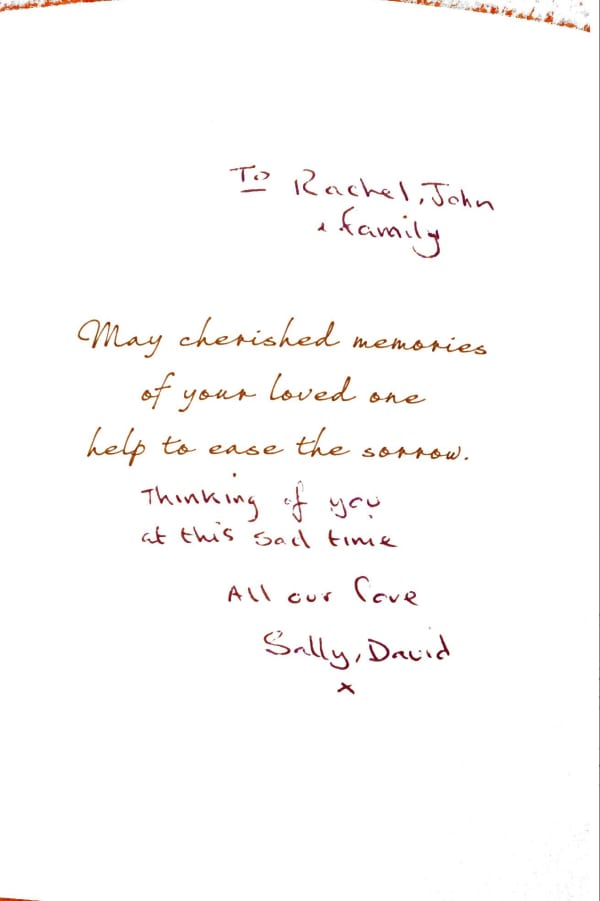 To Rachel, John
+ family
May cherished memories
of your loved one
help to ease the sorrow.
Thinking of you
at this sad time
All our love
Sally, David
x